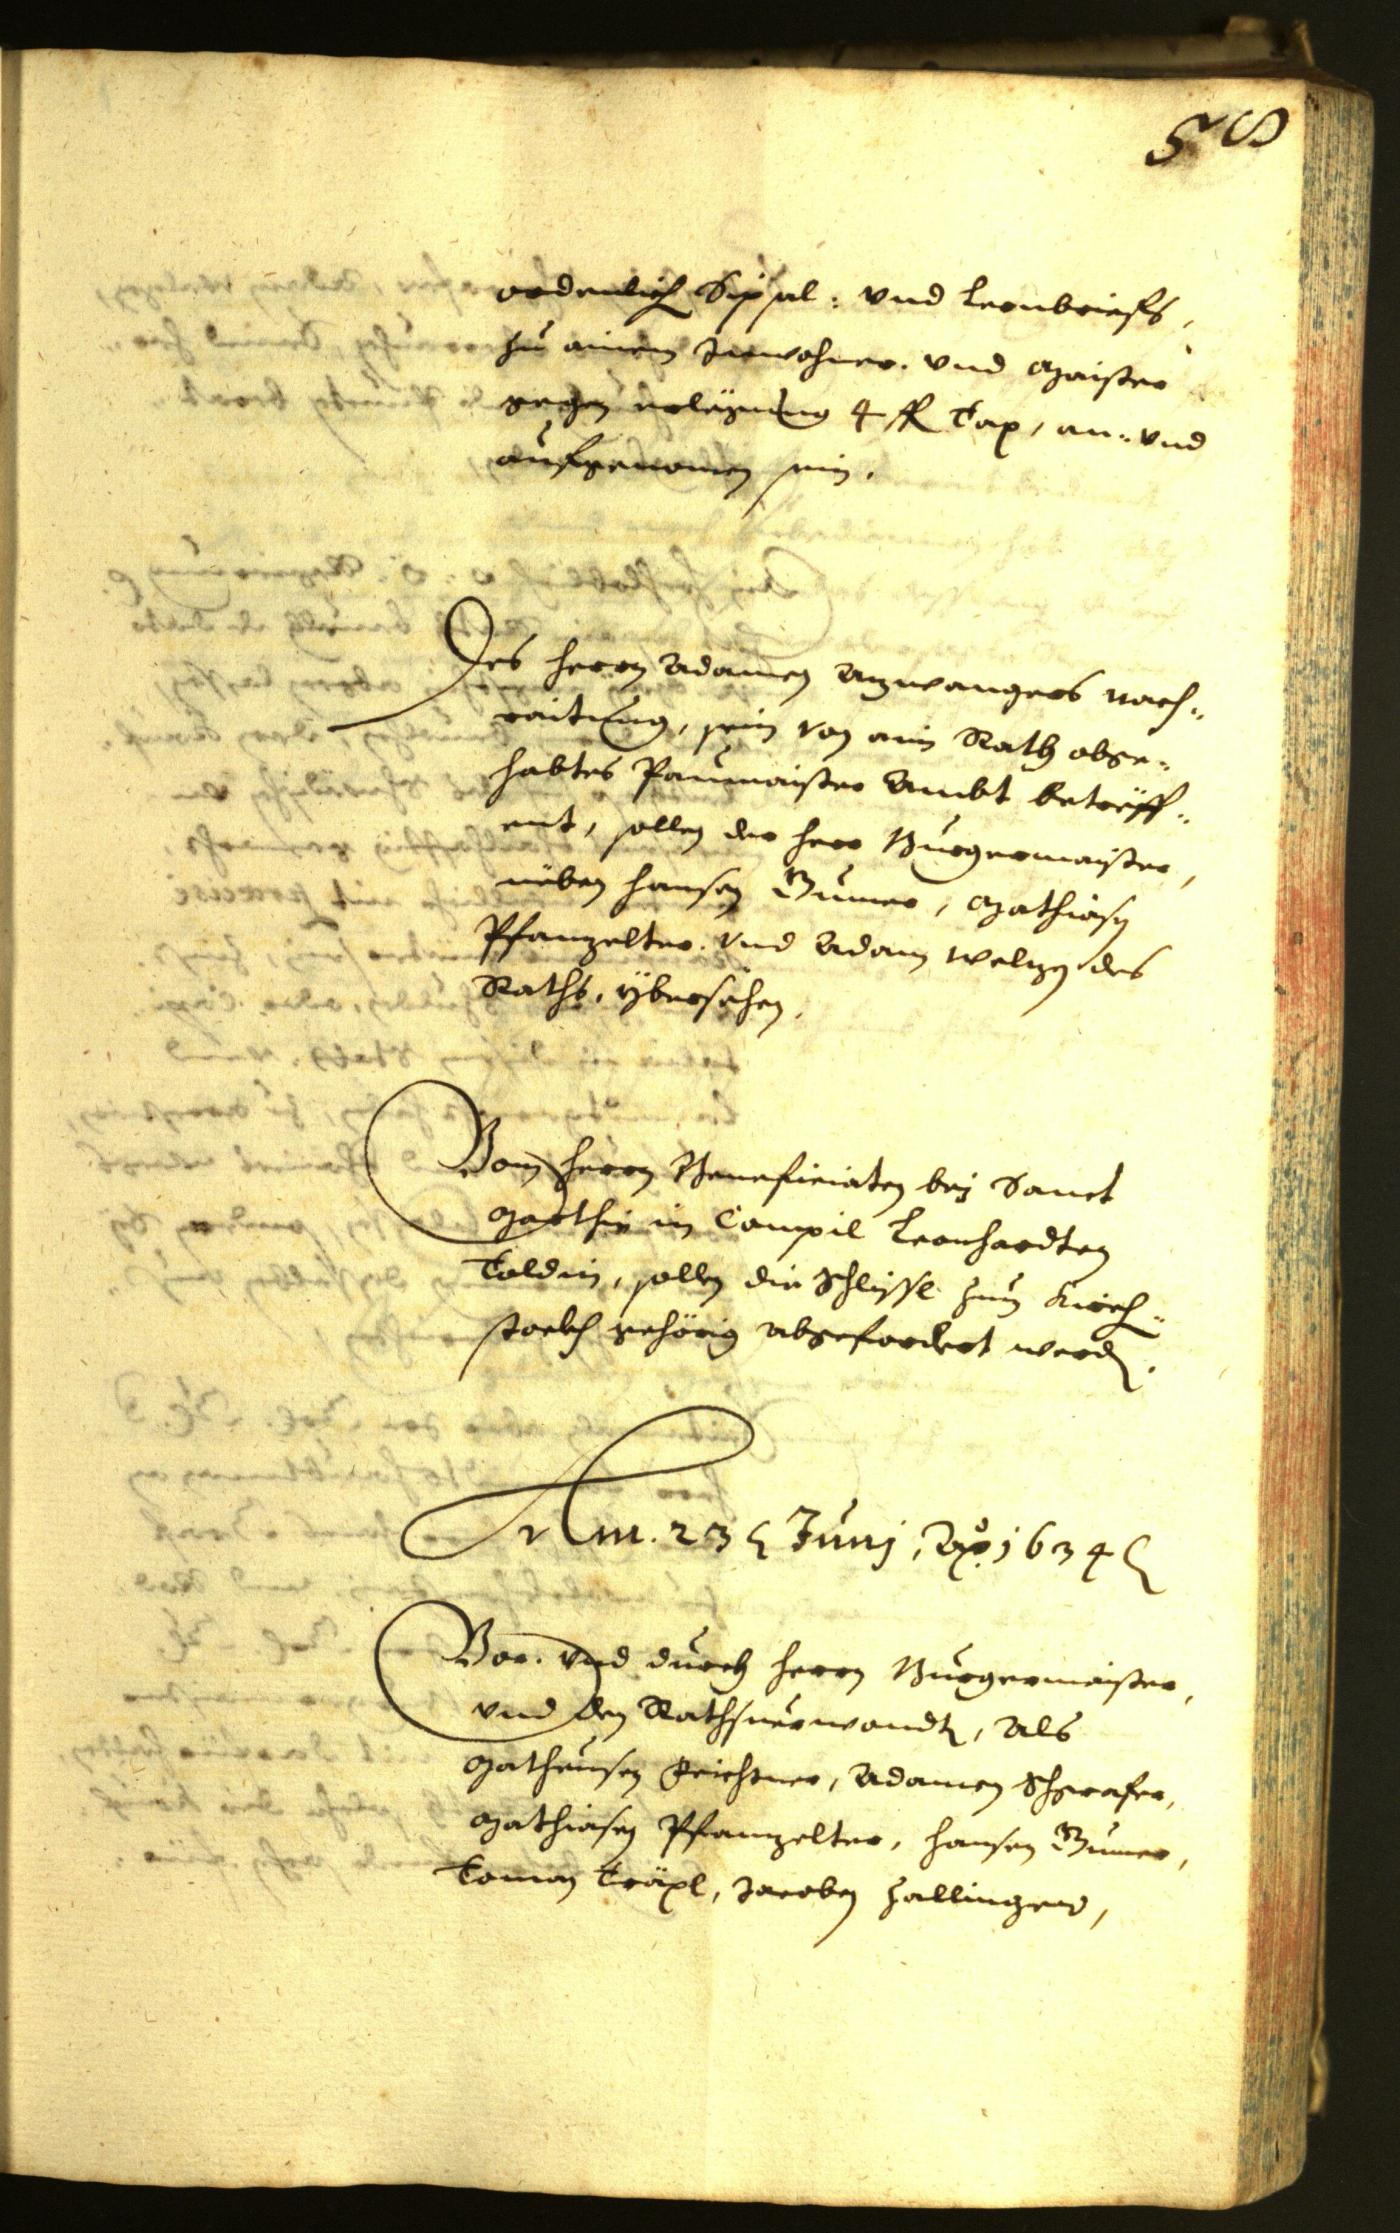 58
ordenlich Sipsal: vnd Lernbriefs,
zu ainem Inwohner. vnd Maister
gegen erlegung 4 fl Tax, an- vnd
aufgenomen sein.
Des Herrn Adamen Anzwangers nach-
raitung, sein von ain Rath obge-
habtes Paumaister Ambt betreff-
ent, sollen der Herr Burgermaister,
neben Hansen Gumer, Mathiasen
Pfanzelter. vnd Adam Welzen des
Raths, ybersehen.
Vom Herrn Beneficiaten bej Sanct
Marthin in Campil Leonhardten
Toldin, sollen die Schlissl zum Kirch-
stockh gehörig abgefordert werden.
Am. 23 Junj, Ao. 1634
Vor. vnd durch Herrn Burgermaister,
vnd den Rathsuerwandten, Als
Matheusen Feichtner, Adamen Schgrafer,
Mathiasen Pfanzelter, Hansen Gumer,
Toman Träxl, Jacoben Zallinger,